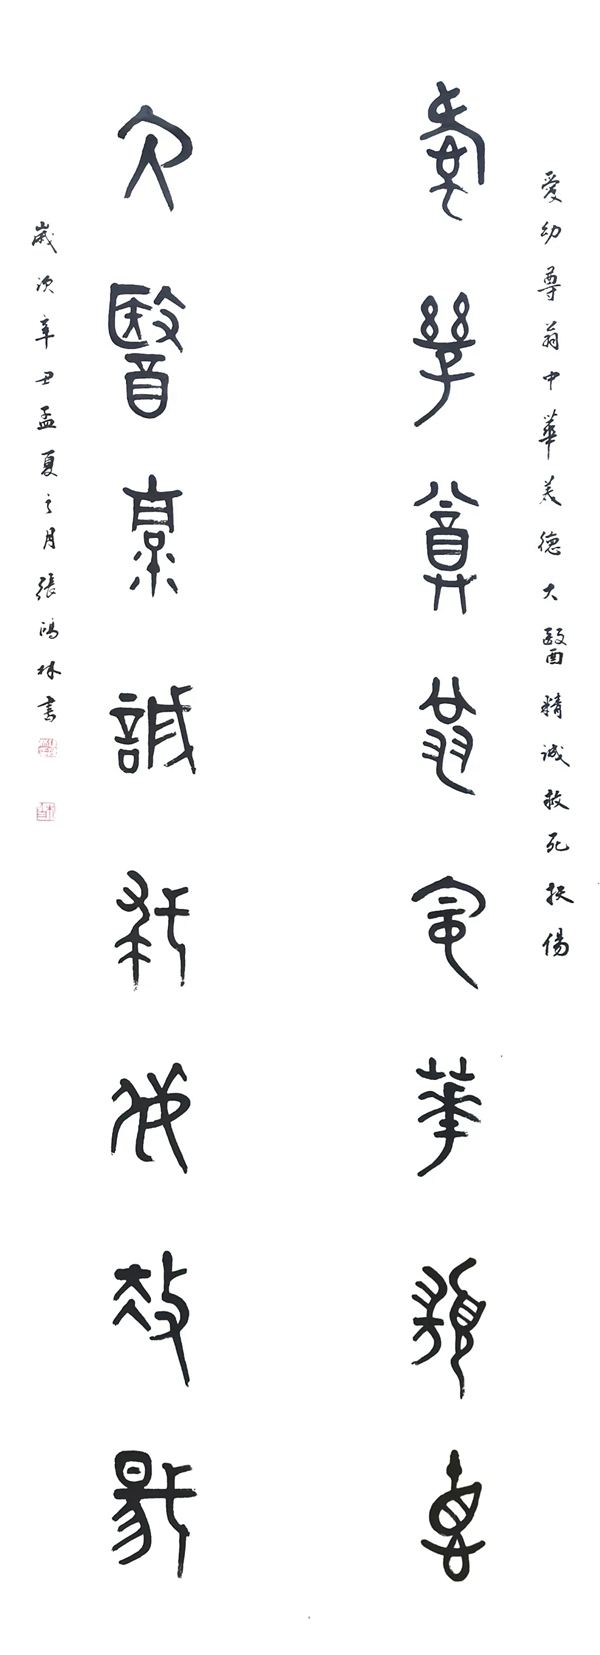 愛幼尊翁中華美德大醫精誠救死扶傷
愛幼尊翁中華美德
大醫精誠救死扶傷
歲次辛丑孟夏之月張鴻林書